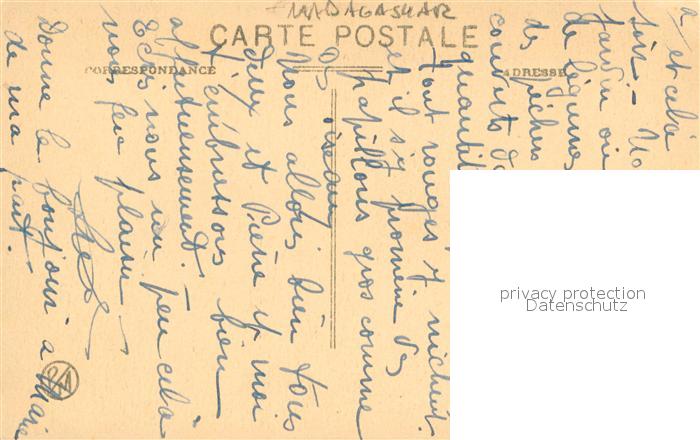 MADAGASKAR
CARTE POSTALE
CORRESPONDANCE
ADRESSE
à et cela
soir - No
jardin où
de légumes
des pêchers
couverts de
quantité
tout rouges y nichent.
et il s'y promène des
papillons gros comme
des oiseaux
Nous allons bien tous
deux et Pierre et moi
t'embrassons bien
affectueusement.
Ecris nous un peu cela
nous fera plaisir
Donne le bonjour à Marie
de ma part.
privacy protection
Datenschutz